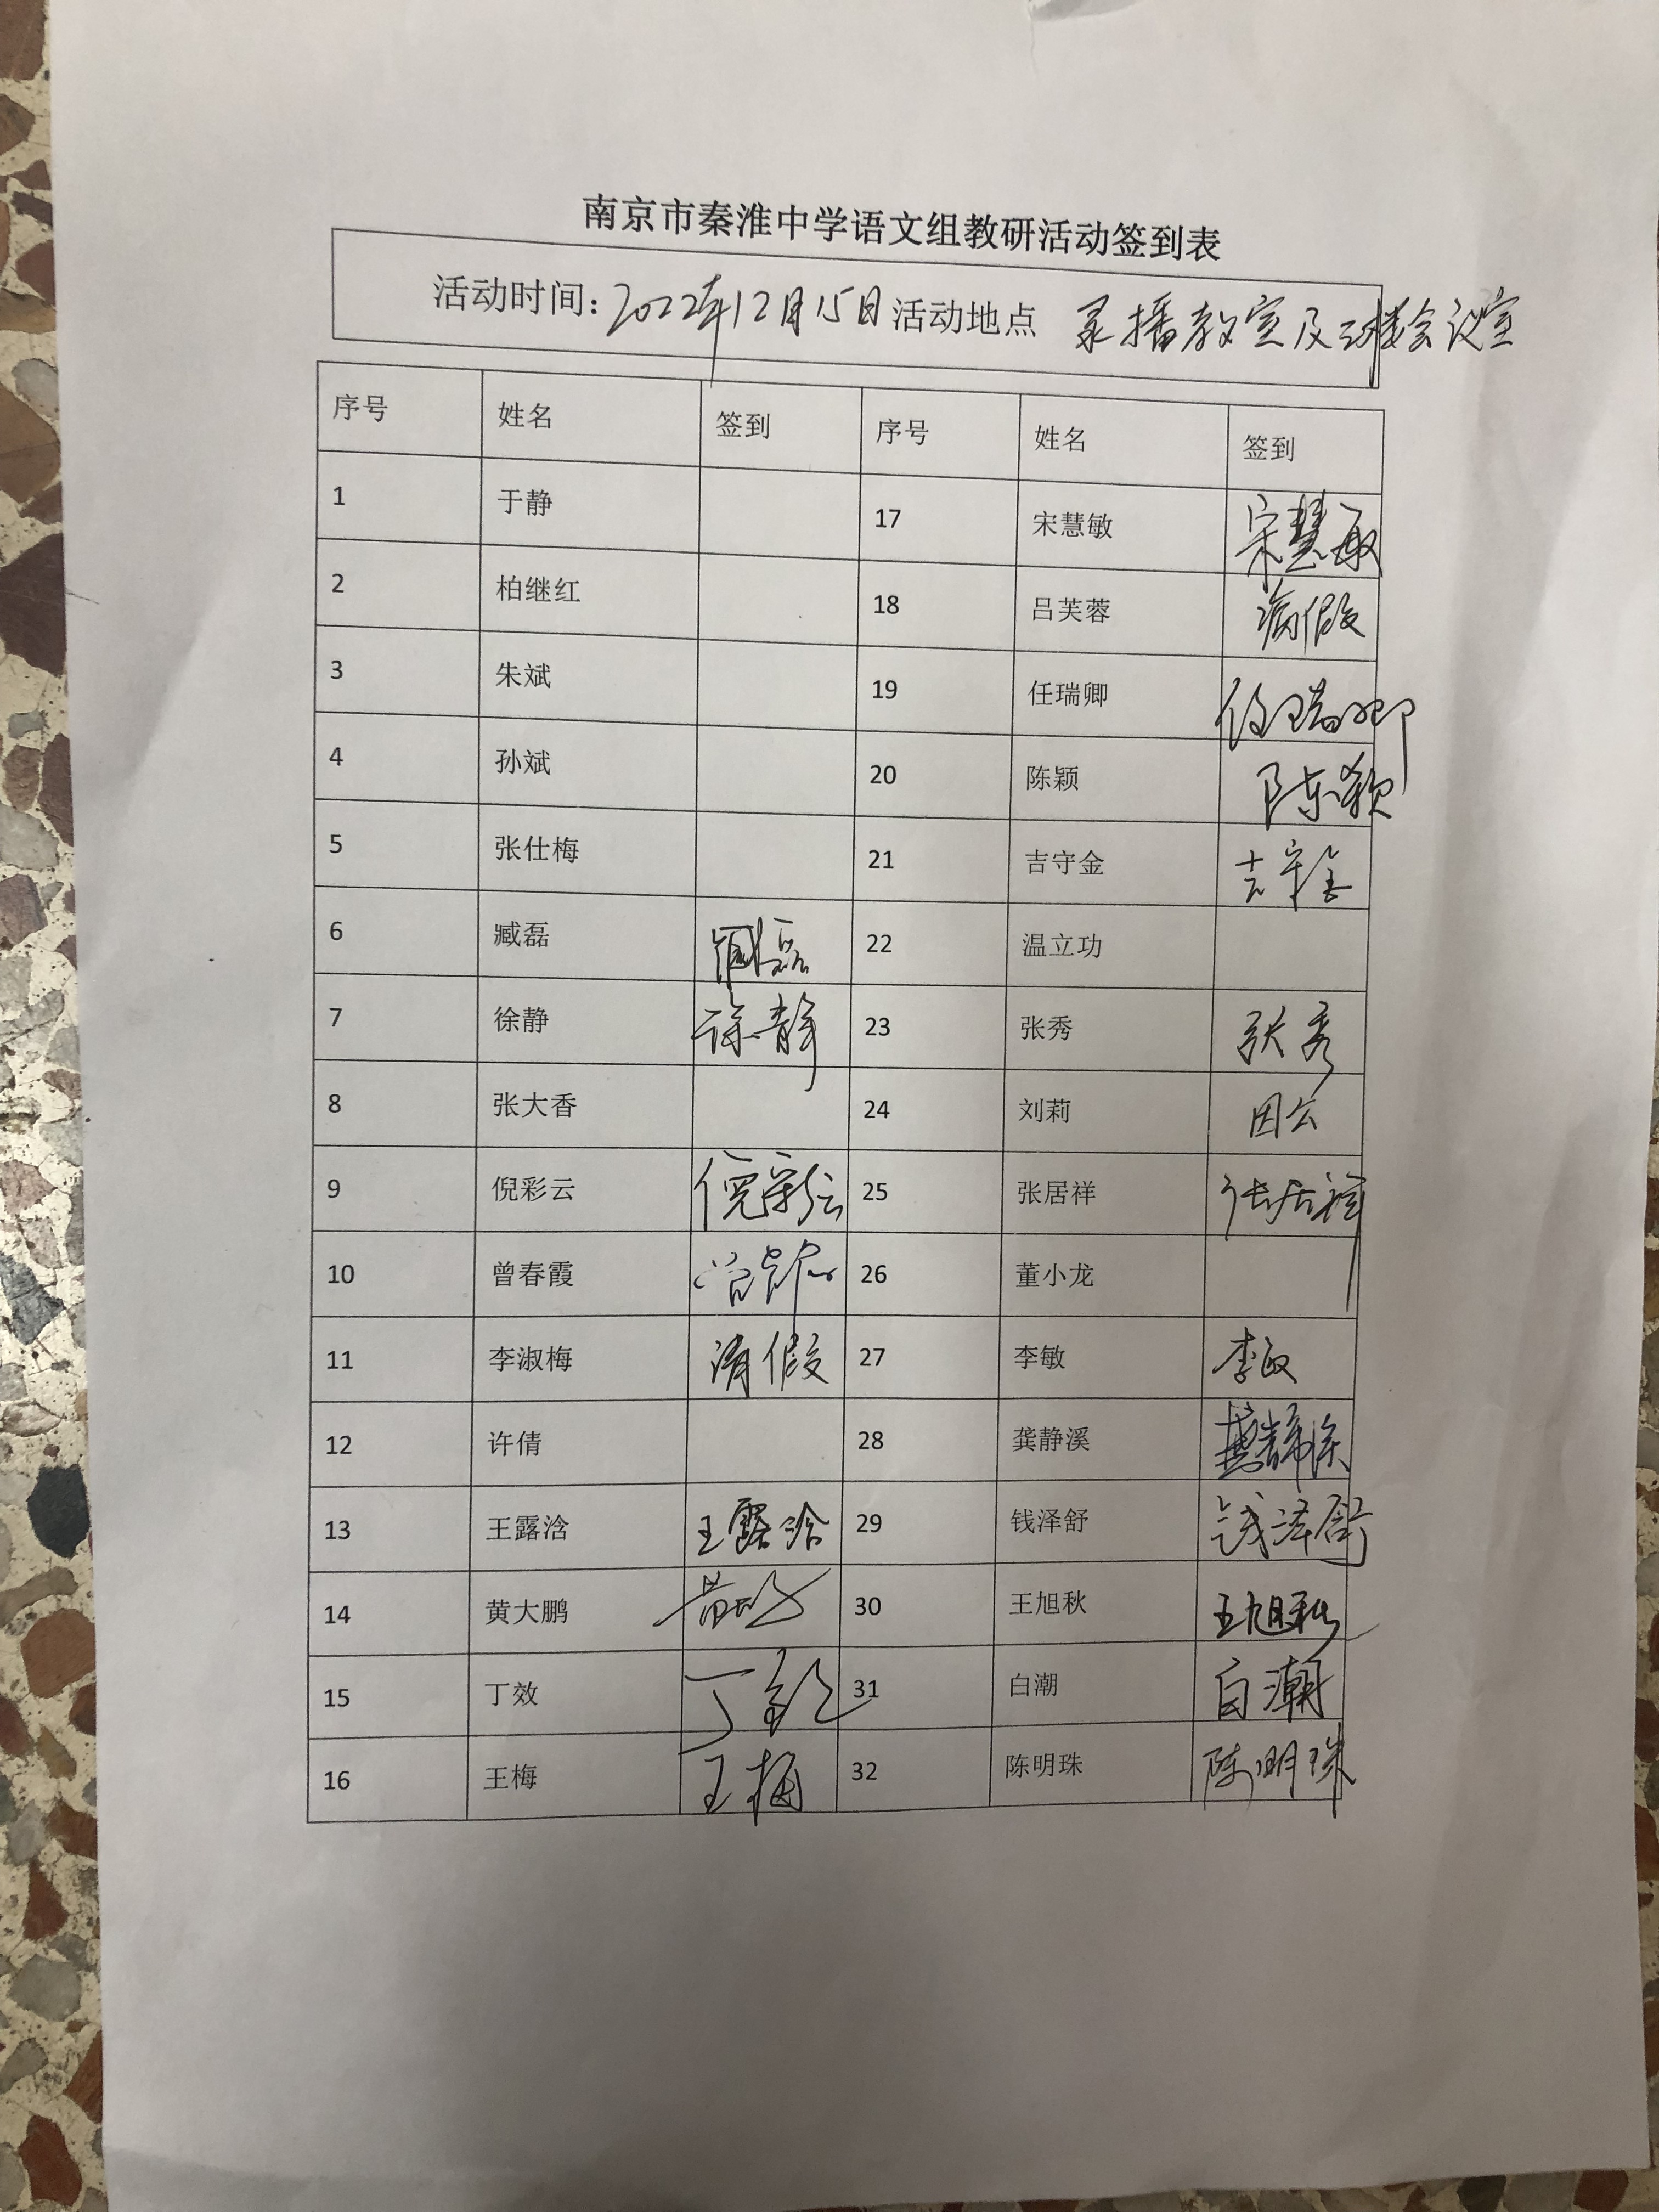 南京市秦淮中学语文组教研活动签到表
活动时间：2022年12月15日 活动地点 录播教室及三楼会议室
序号 姓名 签到 序号 姓名 签到
1 于静 17 宋慧敏 宋慧敏
2 柏继红 18 吕芙蓉 病假
3 朱斌 19 任瑞卿 任瑞卿
4 孙斌 20 陈颖 陈颖
5 张仕梅 21 吉守金 吉守金
6 臧磊 臧磊 22 温立功
7 徐静 徐静 23 张秀 张秀
8 张大香 24 刘莉 因公
9 倪彩云 倪彩云 25 张居祥 张居祥
10 曾春霞 曾春霞 26 董小龙
11 李淑梅 请假 27 李敏 李敏
12 许倩 28 龚静溪 龚静溪
13 王露浛 王露浛 29 钱泽舒 钱泽舒
14 黄大鹏 黄大鹏 30 王旭秋 王旭秋
15 丁效 丁效 31 白潮 白潮
16 王梅 王梅 32 陈明珠 陈明珠